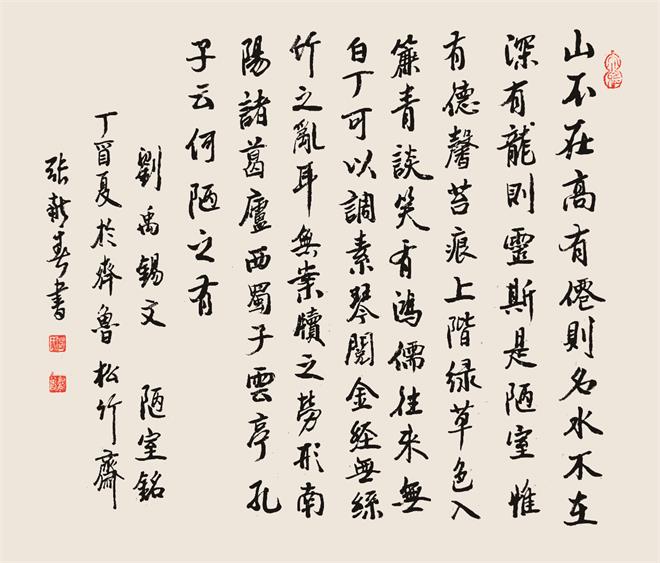 山不在高有僊則名水不在
深有龍則靈斯是陋室惟
有德馨苔痕上階緑草色入
簾青談笑有鴻儒往来無
白丁可以調素琴閱金經無絲
竹之亂耳無案牘之勞形南
陽諸葛廬西蜀子雲亭孔
子云何陋之有
劉禹錫文 陋室銘
丁酉夏於齊魯松竹齋
张新春書